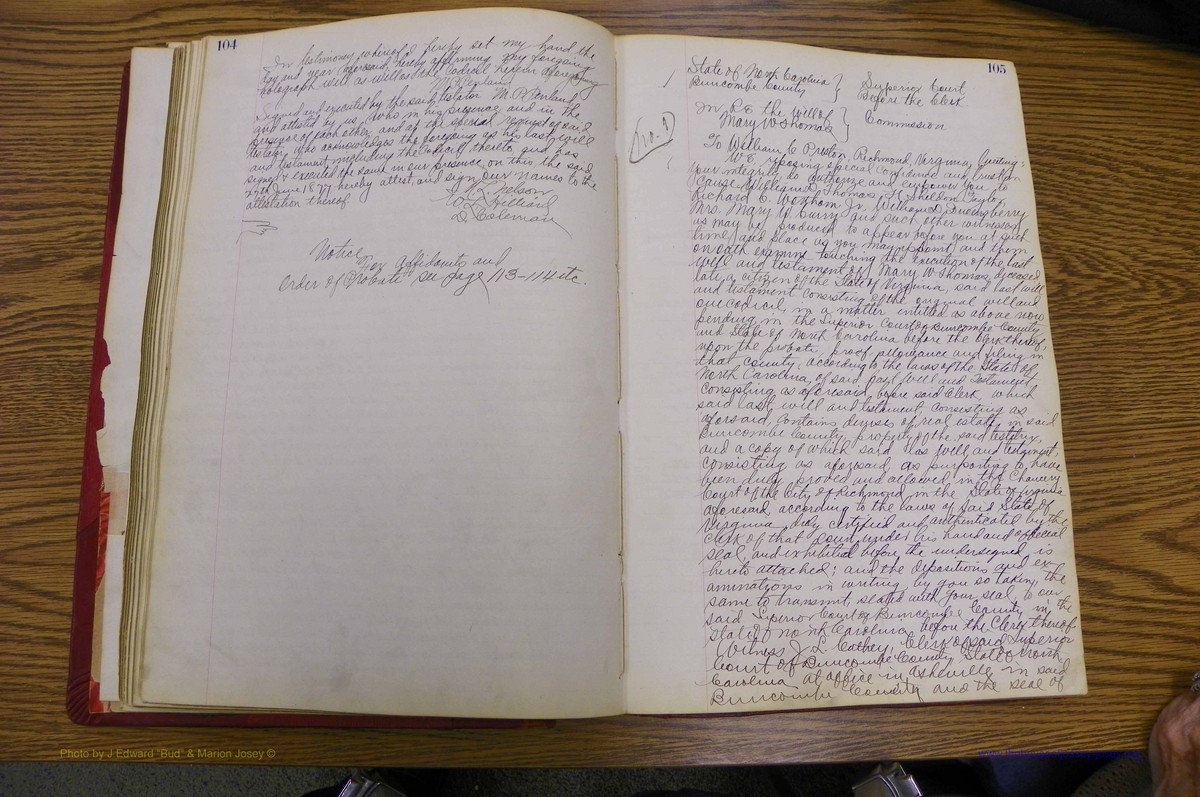 104
In testimony whereof I hereby set my hand the
day and year aforesaid, hereby affirming the foregoing
holograph will as well as the codicil herein aforegoing
M. P. Penland
Signed and executed by the said testator M. P. Penland
and attested by us, who in his presence and in the
presence of each other, and at the special request of said
testator, who acknowledges the foregoing as his last will
and testament including the codicil thereto and has
signed & executed the same in our presence on this the said
27th June 18 hereby attest, and sign our names to the
attestation thereof
Nelson
W. L. Hilliard
D. Coleman
Notice
For affidavits and
order of Probate see page 113-114 etc.
105
State of North Carolina } Superior Court
Buncombe County } Before the Clerk
In Re the Will of } Commission
Mary W Thomas }
(No. 1)
To William C Preston, Richmond, Virginia, Greeting:
We reposing special confidence and trust in
your integrity do authorize and empower you to
cause William D. Thomas, J. M. Sheldon Taylor,
Richard C. Wortham Jr, William
Mrs. Mary W. Curry and such other witnesses
as may be produced to appear before you at such
time and place as you may appoint and them
on oath examine touching the execution of the last
will and testament of Mary W Thomas, deceased
late a citizen of the State of Virginia, said last will
and testament consisting of the original will and
one codicil, in a matter entitled as above now
pending in the Superior Court of Buncombe County
and State of North Carolina before the Clerk thereof
upon the probate, proof, allowance and filing in
that county, according to the laws of the State of
North Carolina, of said last Will and Testament
consisting as aforesaid, before said Clerk, which
said last will and testament consisting as
aforesaid, contains devises of real estate in said
Buncombe County, property of the said testatrix,
and a copy of which said last will and testament,
consisting as aforesaid, as purporting to have
been duly proved and allowed in the Chancery
Court of the City of Richmond in the State of Virginia
aforesaid according to the laws of said State of
Virginia, duly certified and authenticated by the
clerk of that court under his hand and official
seal, and exhibited before the undersigned is
hereto attached; and the depositions and ex
aminations in writing by you so taken, the
same to transmit, sealed with your seal, to our
said Superior Court of Buncombe County in the
State of North Carolina, before the Clerk thereof
Witness J. L. Cathey, Clerk of said Superior
Court of Buncombe County State of North
Carolina at office in Asheville in said
Buncombe County and the seal of
Photo by J Edward "Bud" & Marion Josey ©